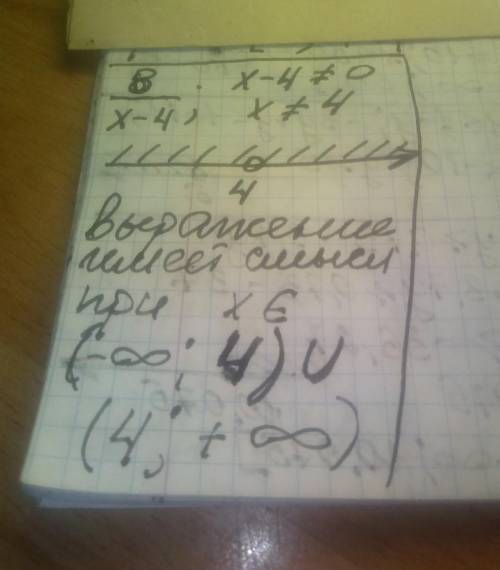 8/(x-4); x-4≠0
x≠4
4
Выражение
имеет смысл
при x∈
(-∞; 4)∪
(4; +∞)